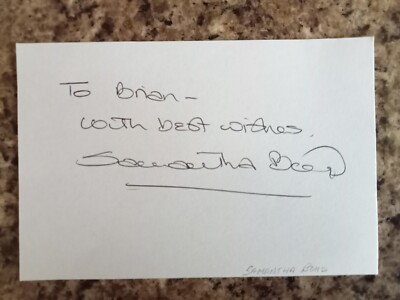 To Brian -
with best wishes.
Samantha Bond
SAMANTHA BOND